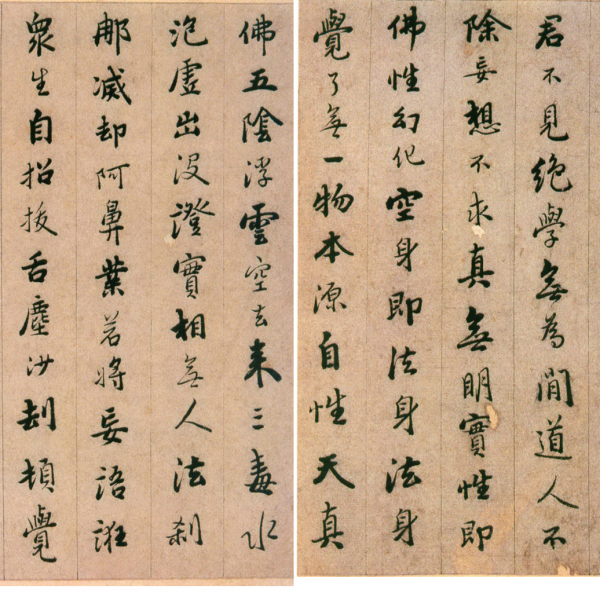 君不見絶學無為閒道人不
除妄想不求真無明實性即
佛性幻化空身即法身法身
覺了無一物本源自性天真
佛五陰浮雲空去来三毒水
泡虛出没證實相無人法刹
那滅却阿鼻業若將妄語誑
衆生自招拔舌塵沙刦頓覺